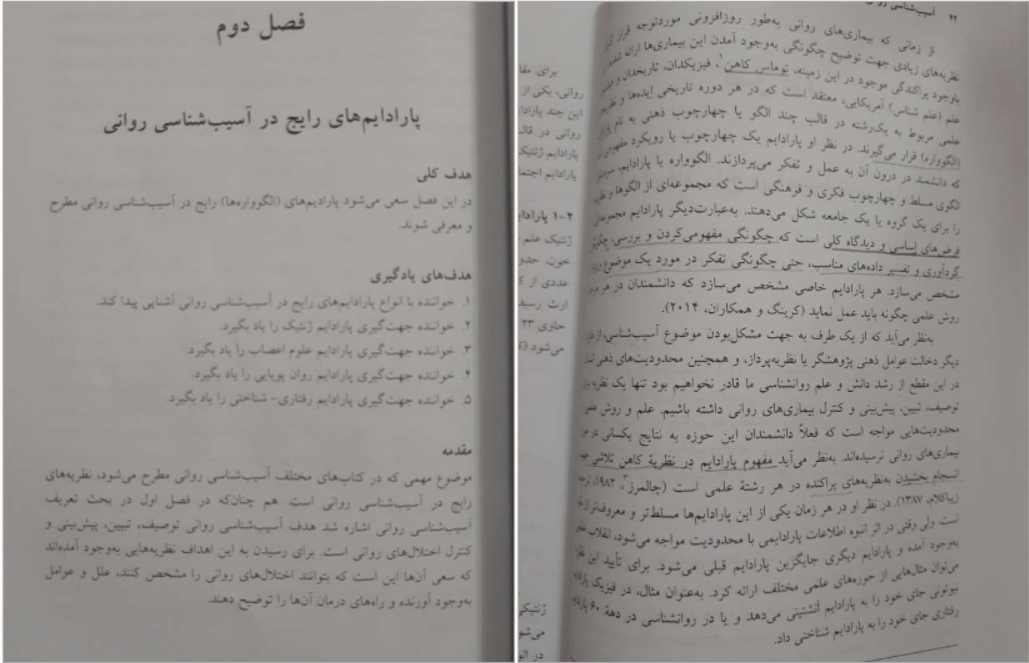 فصل دوم
پارادایم‌های رایج در آسیب‌شناسی روانی
هدف کلی
در این فصل سعی می‌شود پارادیم‌های (الگوواره‌ها) رایج در آسیب‌شناسی روانی مطرح
و معرفی شوند.
هدف‌های یادگیری
۱. خواننده با انواع پارادایم‌های رایج در آسیب‌شناسی روانی آشنایی پیدا کند.
۲. خواننده جهت‌گیری پارادایم ژنتیک را یاد بگیرد.
۳. خواننده جهت‌گیری پارادایم علوم اعصاب را یاد بگیرد.
۴. خواننده جهت‌گیری پارادایم روان پویایی را یاد بگیرد.
۵. خواننده جهت‌گیری پارادایم رفتاری- شناختی را یاد بگیرد.
مقدمه
موضوع مهمی که در کتاب‌های مختلف آسیب‌شناسی روانی مطرح می‌شود، نظریه‌های
رایج در آسیب‌شناسی روانی است. هم چنان‌که در فصل اول در بحث تعریف
آسیب‌شناسی روانی اشاره شد هدف آسیب‌شناسی روانی توصیف، تبیین، پیش‌بینی و
کنترل اختلال‌های روانی است. برای رسیدن به این اهداف نظریه‌هایی به‌وجود آمده‌اند
که سعی آن‌ها این است که بتوانند اختلال‌های روانی را مشخص کنند، علل و عوامل
به‌وجود آورنده و راه‌های درمان آن‌ها را توضیح دهند.
۲۲ آسیب‌شناسی
از زمانی که بیماری‌های روانی به‌طور روزافزونی موردتوجه قرار
نظریه‌های زیادی جهت توضیح چگونگی به‌وجود آمدن این بیماری‌ها ارائه
باوجود پراکندگی موجود در این زمینه، توماس کاهن۱، فیزیکدان، تاریخدان و
علم (علم شناس) آمریکایی، معتقد است که در هر دوره تاریخی ایده‌ها و
علمی مربوط به یک‌رشته در قالب چند الگو یا چهارچوب ذهنی به نام
(الگوواره) قرار می‌گیرند. در نظر او پارادایم یک چهارچوب یا رویکرد مفهومی
که دانشمند در درون آن به عمل و تفکر می‌پردازند. الگوواره یا پارادایم،
الگوی مسلط و چهارچوب فکری و فرهنگی است که مجموعه‌ای از الگوها و
را برای یک گروه یا یک جامعه شکل می‌دهند. به‌عبارت‌دیگر پارادایم
فرض‌های اساسی و دیدگاه کلی است که چگونگی مفهومی‌کردن و بررسی،
گردآوری و تفسیر داده‌های مناسب، حتی چگونگی تفکر در مورد یک موضوع
مشخص می‌سازد. هر پارادایم خاصی مشخص می‌سازد که دانشمندان در هر
روش علمی چگونه باید عمل نماید (کرینگ و همکاران، ۲۰۱۴).
به‌نظر می‌آید که از یک طرف به جهت مشکل‌بودن موضوع آسیب‌شناسی، از
دیگر دخالت عوامل ذهنی پژوهشگر یا نظریه‌پرداز، و همچنین محدودیت‌های ذهنی
در این مقطع از رشد دانش و علم روانشناسی ما قادر نخواهیم بود تنها یک نظریه
توصیف، تبیین، پیش‌بینی و کنترل بیماری‌های روانی داشته باشیم. علم و روش
محدودیت‌هایی مواجه است که فعلاً دانشمندان این حوزه به نتایج یکسانی در
بیماری‌های روانی نرسیده‌اند. به‌نظر می‌آید مفهوم پارادایم در نظریهٔ کاهن تلاشی
انسجام بخشیدن به‌نظریه‌های پراکنده در هر رشتهٔ علمی است (چالمرز۲، ۱۹۸۲،
زیباکلام، ۱۳۸۷). در نظر او در هر زمان یکی از این پارادایم‌ها مسلط‌تر و معروف‌تر از
است. ولی وقتی در اثر انبوه اطلاعات پارادایمی با محدودیت مواجه می‌شود، انقلاب
به‌وجود آمده و پارادایم دیگری جایگزین پارادایم قبلی می‌شود. برای تأیید این
می‌توان مثال‌هایی از حوزه‌های علمی مختلف ارائه کرد. به‌عنوان مثال، در فیزیک
نیوتونی جای خود را به پارادایم آنشتینی می‌دهد و یا در روانشناسی در دههٔ ۶۰
رفتاری جای خود را به پارادایم شناختی داد.
برای
روانی، یکی از
این چند
روانی در
پارادایم ژنتیک
پارادایم
۲-۱
ژنتیک علم
خون،
عددی از
ارث
حاوی ۲۳
می‌شود
ژنتیکی
در